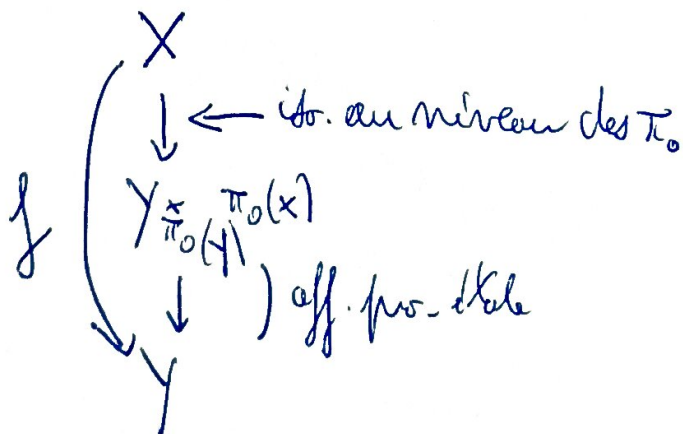 X
iso. au niveau des π₀
f
Y ×_{π₀(Y)} π₀(X)
aff. pro-étale
Y